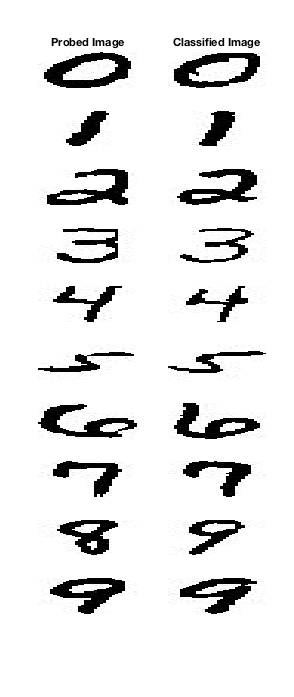 Probed Image Classified Image
0 0
1 1
2 2
3 3
4 4
5 5
6 6
7 7
8 9
9 9